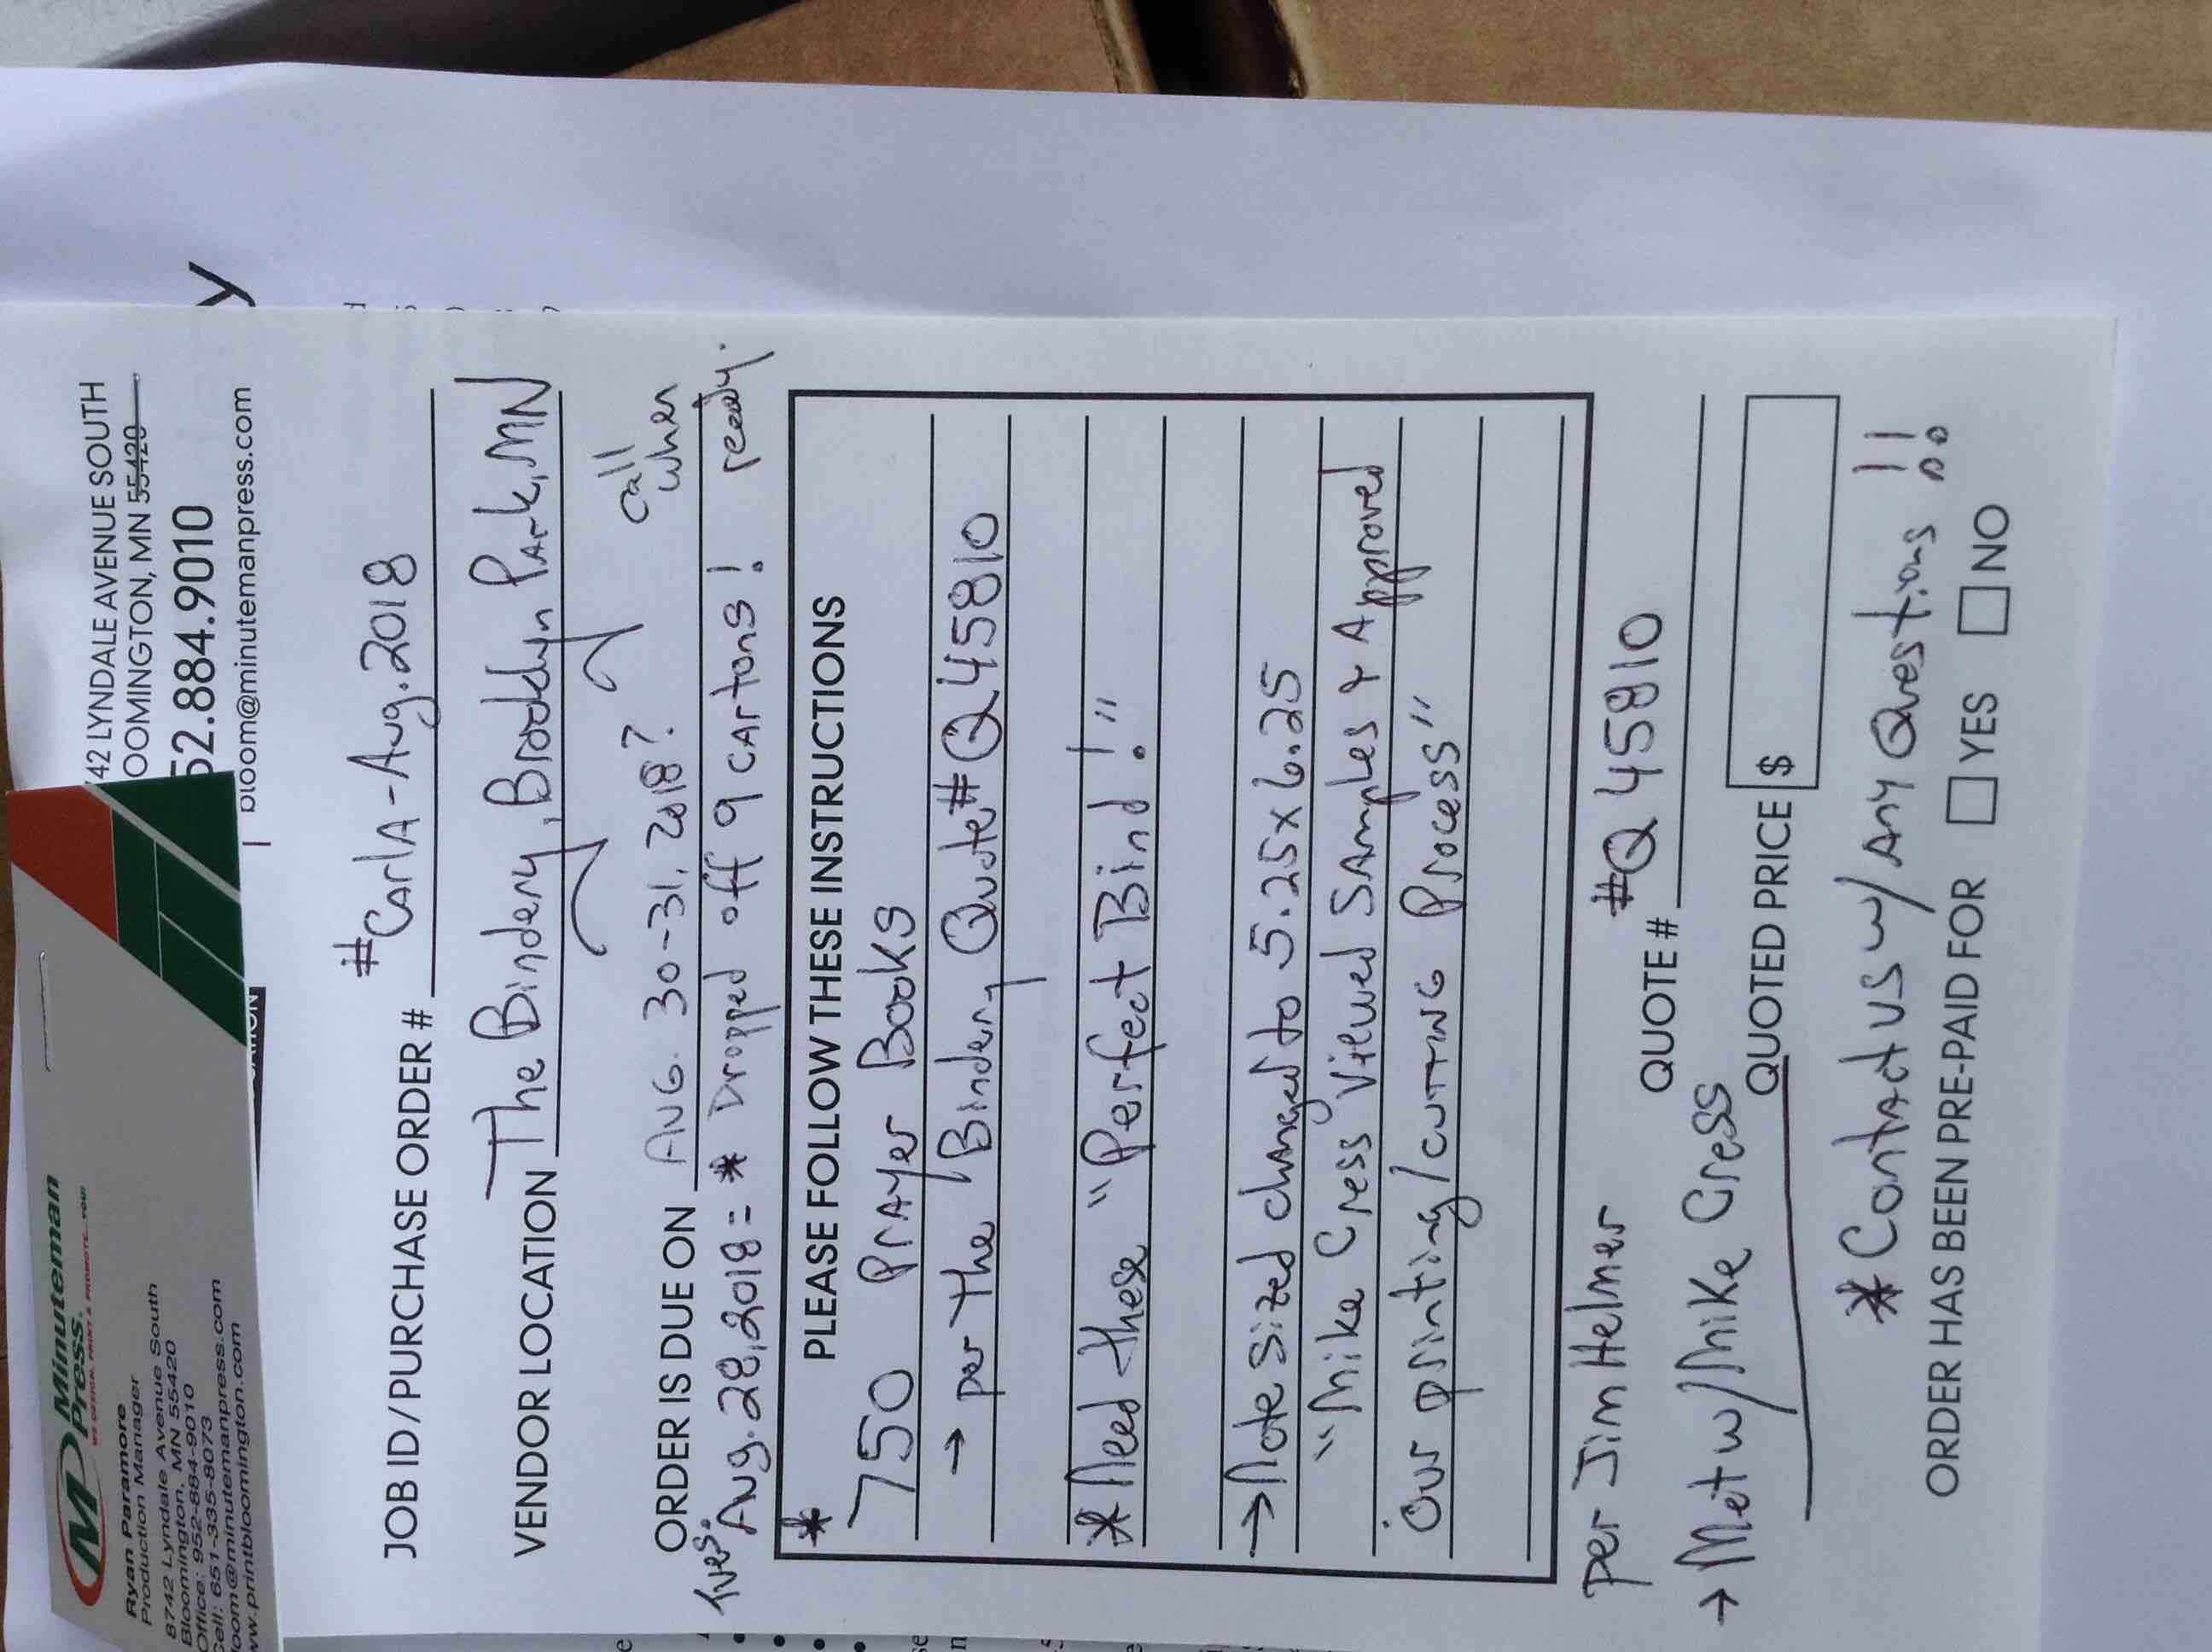 Minuteman
Press.
WE DESIGN, PRINT & PROMOTE...YOU!
Ryan Paramore
Production Manager
8742 Lyndale Avenue South
Bloomington, MN 55420
Office: 952-884-9010
Cell: 651-335-8073
loom@minutemanpress.com
ww.printbloomington.com
42 LYNDALE AVENUE SOUTH
OOMINGTON, MN 55420
52.884.9010
bloom@minutemanpress.com
y
JOB ID/PURCHASE ORDER # #CArlA-Aug.2018
VENDOR LOCATION The Bindery, Brooklyn PArk, MN
ORDER IS DUE ON AUG. 30-31, 2018? Call when ready.
Tues. Aug. 28, 2018 = * Dropped off 9 cArtons!
* PLEASE FOLLOW THESE INSTRUCTIONS
750 PrAyer Books
→ per the Bindery Quote# Q45810
* Need these "Perfect Bind!"
→ Note sized changed to 5.25 x 6.25
"Mike Cress Viewed SAmples & Approved
Our printing/cutting Process"
per Jim Helmer
QUOTE # #Q 45810
→ Met w/ Mike Cress
QUOTED PRICE $
* ContAct us w/ Any Questions!!
ORDER HAS BEEN PRE-PAID FOR YES NO